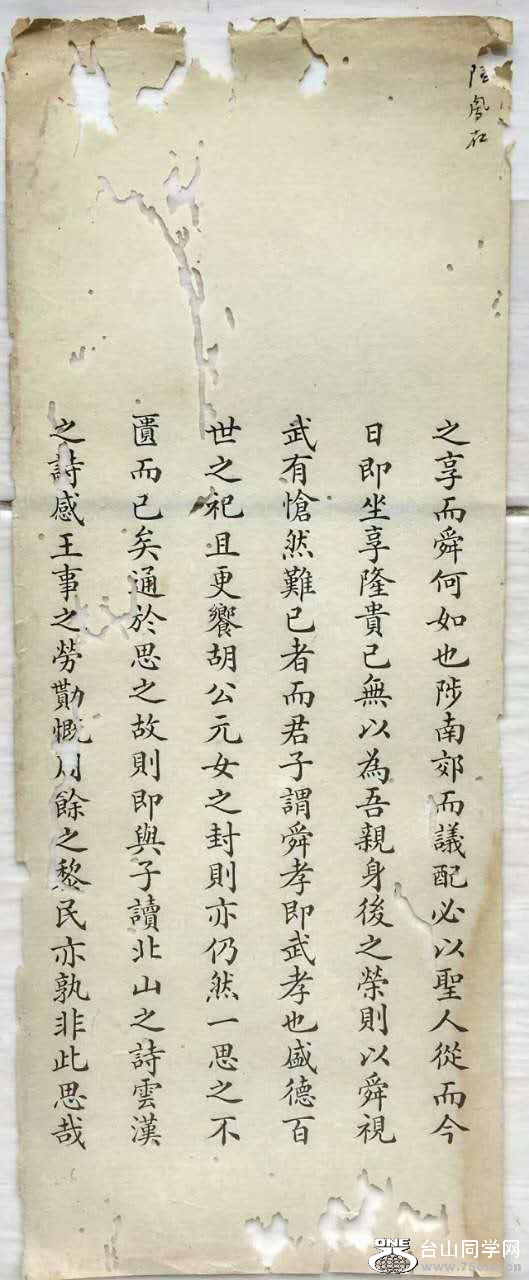 之享而舜何如也陟南郊而議配必以聖人從而今
日即坐享隆貴已無以為吾親身後之榮則以舜視
武有愴然難已者而君子謂舜孝即武孝也盛德百
世之祀且更饗胡公元女之封則亦仍然一思之不
匱而已矣通於思之故則即與子讀北山之詩雲漢
之詩感王事之勞勩慨周餘之黎民亦孰非此思哉
ONE
台山同学网
www.75one.cn